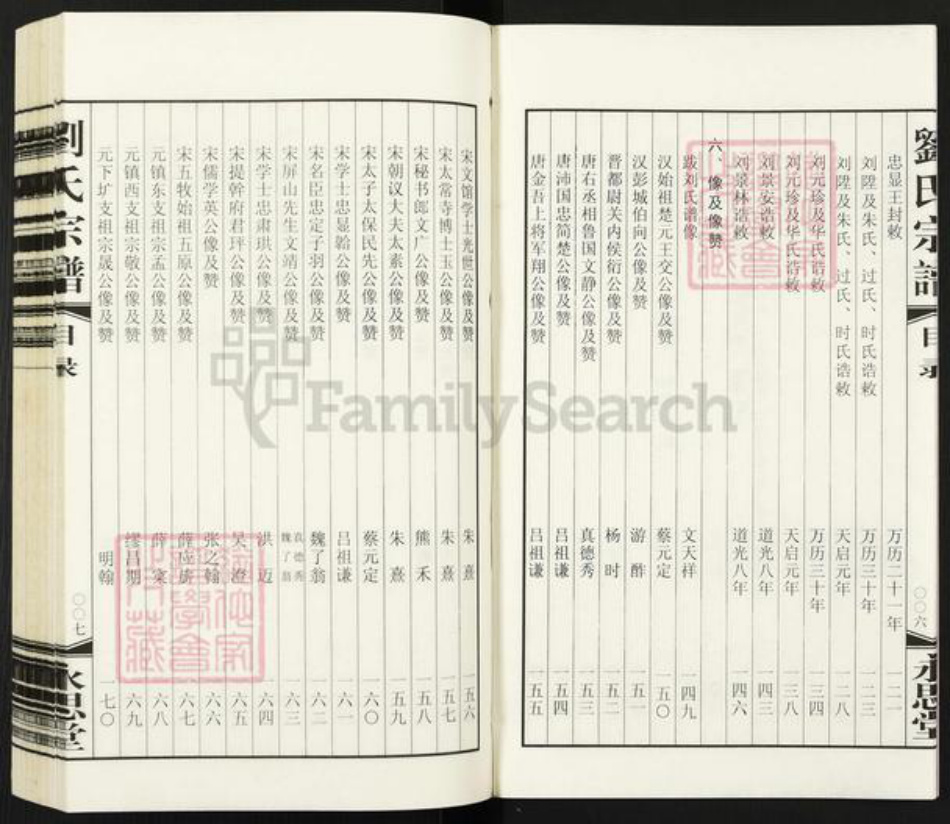 劉氏宗譜
目录
〇〇六
永思堂
忠显王封敕 万历二十一年 一二一
刘陞及朱氏、过氏、时氏诰敕 万历三十年 一二三
刘陞及朱氏、过氏、时氏诰敕 天启元年 一二八
刘元珍及华氏诰敕 万历三十年 一三四
刘元珍及华氏诰敕 天启元年 一三八
刘景安诰敕 道光八年 一四三
刘景林诰敕 道光八年 一四六
六、像及像赞
跋刘氏谱像 文天祥 一四九
汉始祖楚元王交公像及赞 蔡元定 一五〇
汉彭城伯向公像及赞 游酢 一五一
晋都尉关内侯衍公像及赞 杨时 一五二
唐右丞相鲁国文静公像及赞 真德秀 一五三
唐沛国忠简楚公像及赞 吕祖谦 一五四
唐金吾上将军翔公像及赞 吕祖谦 一五五
宋文馆学士光世公像及赞 朱熹 一五六
宋太常寺博士玉公像及赞 朱熹 一五七
宋秘书郎文广公像及赞 熊禾 一五八
宋朝议大夫太素公像及赞 朱熹 一五九
宋太子太保民先公像及赞 蔡元定 一六〇
宋学士忠显韐公像及赞 吕祖谦 一六一
宋名臣忠定子羽公像及赞 魏了翁 一六二
宋屏山先生文靖公像及赞 真德秀 魏了翁 一六三
宋学士忠肃珙公像及赞 洪迈 一六四
宋提幹府君坪公像及赞 吴澄 一六五
宋儒学英公像及赞 张之翰 一六六
宋五牧始祖五原公像及赞 薛应旂 一六七
元镇东支祖宗孟公像及赞 薛寀 一六八
元镇西支祖宗敬公像及赞 缪昌期 一六九
元下圹支祖宗晟公像及赞 明翰 一七〇
劉氏宗譜
目录
〇〇七
永思堂
FamilySearch